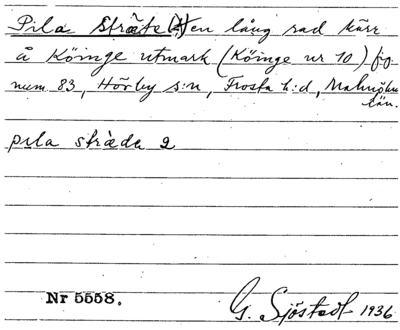 Pila Sträte (2) en lång rad kärr
å Köinge utmark (Köinge nr 10) fig.
num 83, Hörby s:n, Frosta h:d, Malmöhus
län.
pila sträde 2
Nr 5558.
G. Sjöstedt 1936